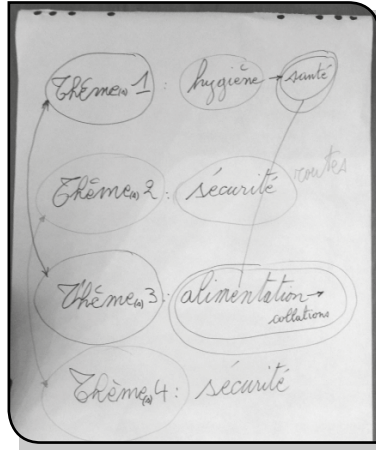 Thème(s) 1 : hygiène → santé
Thème(s) 2 : sécurité routes
Thème(s) 3 : alimentation →
collations
Thème(s) 4 : sécurité